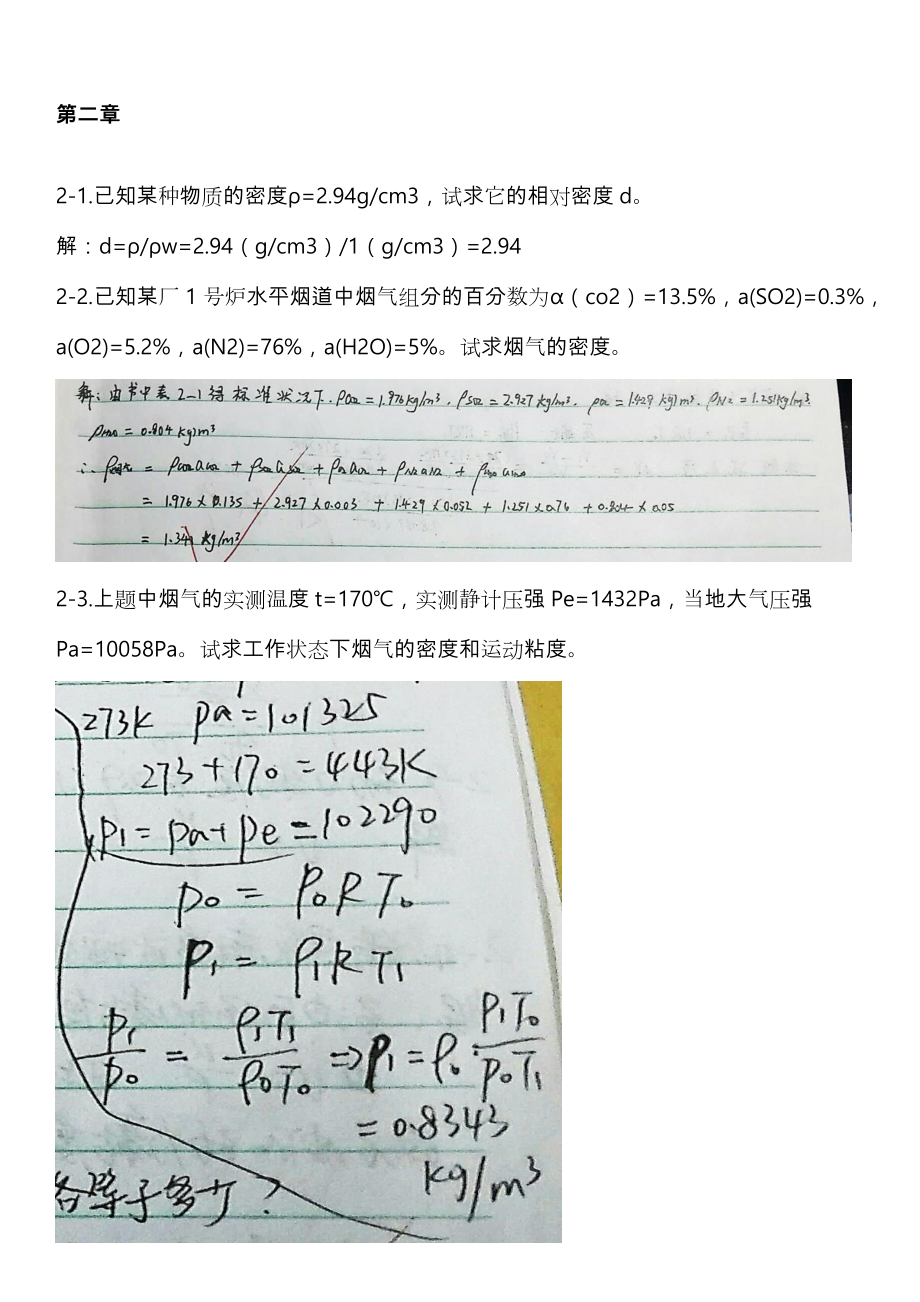 第二章
2-1.已知某种物质的密度ρ=2.94g/cm3，试求它的相对密度 d。
解：d=ρ/ρw=2.94（g/cm3）/1（g/cm3）=2.94
2-2.已知某厂 1 号炉水平烟道中烟气组分的百分数为α（co2）=13.5%，a(SO2)=0.3%，
a(O2)=5.2%，a(N2)=76%，a(H2O)=5%。试求烟气的密度。
解：由书中表2-1得标准状况下，ρCO2=1.976kg/m³，ρSO2=2.927kg/m³，ρO2=1.429kg/m³，ρN2=1.251kg/m³
ρH2O=0.804kg/m³
∴ρ烟气 = ρCO2αCO2 + ρSO2αSO2 + ρO2αO2 + ρN2αN2 + ρH2OαH2O
= 1.976×0.135 + 2.927×0.003 + 1.429×0.052 + 1.251×0.76 + 0.804×0.05
= 1.341 kg/m³
2-3.上题中烟气的实测温度 t=170℃，实测静计压强 Pe=1432Pa，当地大气压强
Pa=10058Pa。试求工作状态下烟气的密度和运动粘度。
273K pa=101325
273+170=443K
p1=pa+pe=102290
p0=ρ0RT0
p1=ρ1RT1
p1/p0=ρ1T1/ρ0T0⇒ρ1=ρ0·p1T0/p0T1
=0.8343
kg/m³
各等于多少？